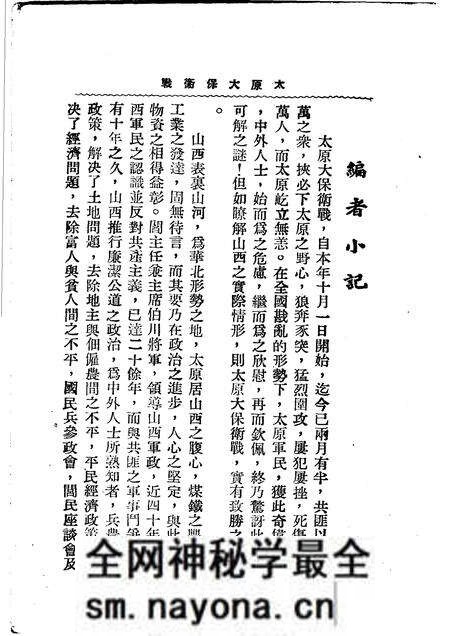 戰衛保大原太
編者小記
太原大保衛戰，自本年十月一日開始，迄今已兩月有半，共匪以
萬之衆，挾必下太原之野心，狼奔豕突，猛烈圍攻，屢犯屢挫，死傷
萬人，而太原屹立無恙。在全國戡亂的形勢下，太原軍民，獲此奇偉
，中外人士，始而爲之危慮，繼而爲之欣慰，再而欽佩，終乃驚訝此
可解之謎！但如瞭解山西之實際情形，則太原大保衛戰，實有致勝之
。
山西表裏山河，爲華北形勢之地，太原居山西之腹心，煤鐵之
工業之發達，固無待言，而其要乃在政治之進步，人心之堅定，與此
物資之相得益彰。閻主任兼主席伯川將軍，領導山西軍政，近四十年
西軍民之認識並反對共產主義，已達二十餘年，而與共匪之軍事鬥爭
有十年之久，山西推行廉潔公道之政治，爲中外人士所熟知者，兵農
政策，解决了土地問題，去除地主與佃僱農間之不平，平民經濟政策
决了經濟問題，去除富人與貧人間之不平，國民兵參政會，閭民座談會及
全网神秘学最全
sm.nayona.cn